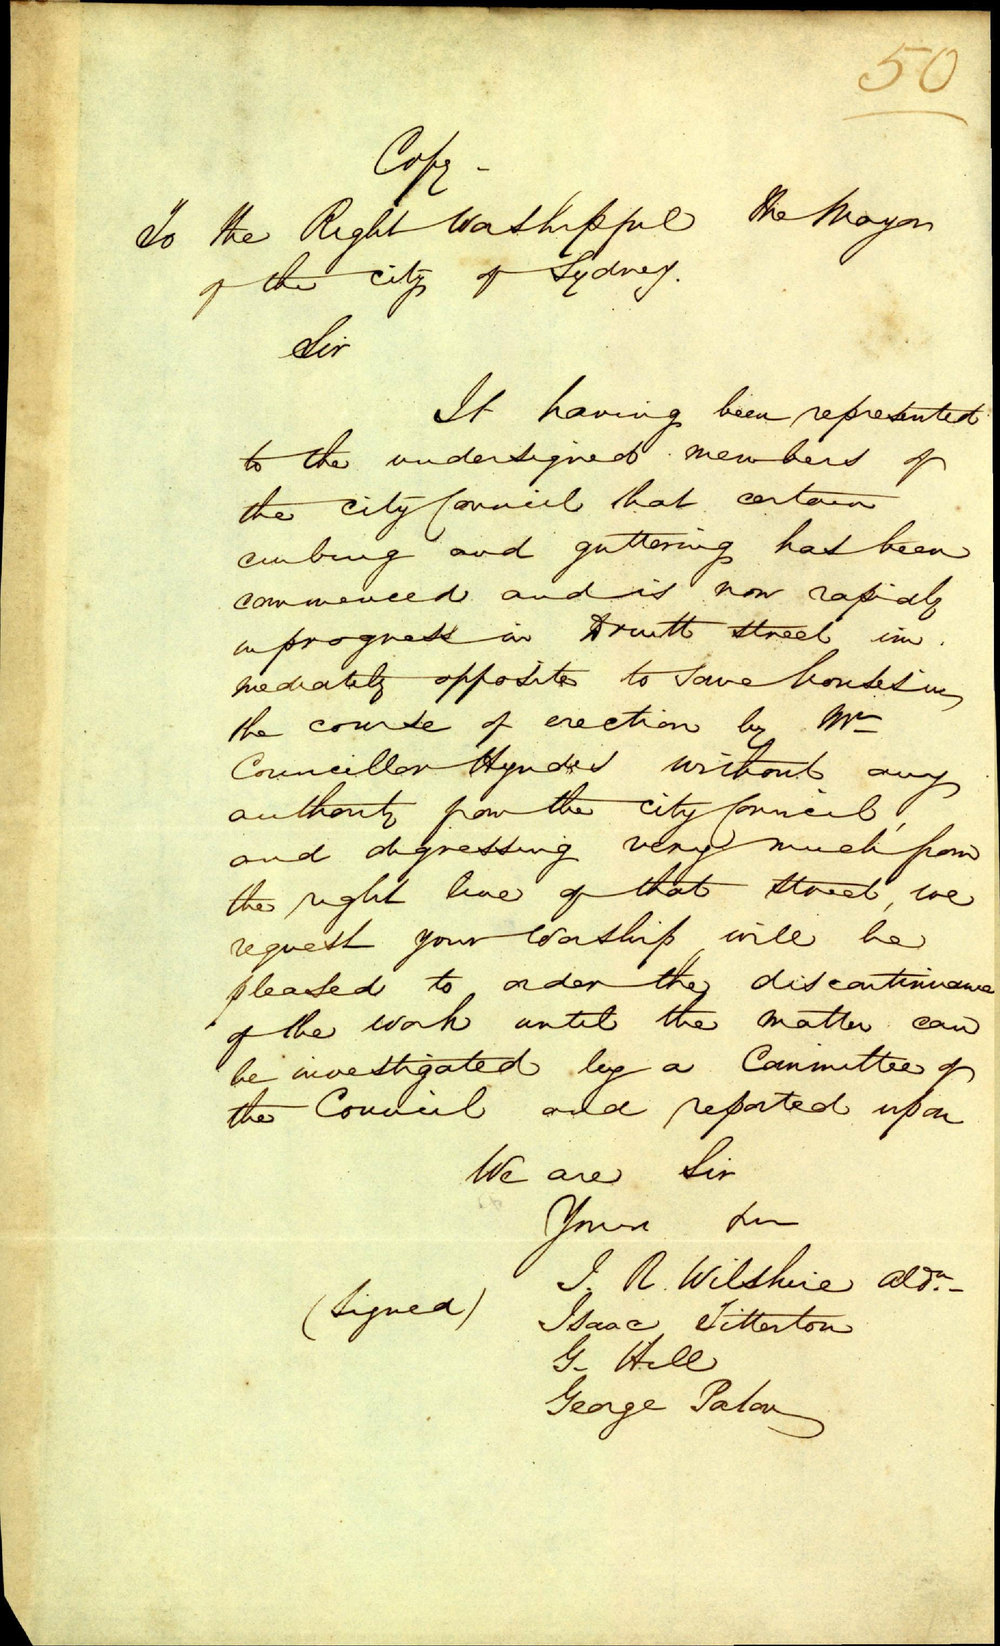 50
Copy -
To the Right Worshipful the Mayor
of the city of Sydney.
Sir
It having been represented
to the undersigned members of
the city Council that certain
curbing and guttering has been
commenced and is now rapidly
in progress in Druitt street im
mediately opposite to some houses in
the course of erection by Mr
Councillor Hyndes without any
authority from the city Council,
and digressing very much from
the right line of that street, we
request your Worship will be
pleased to order the discontinuance
of the work until the matter can
be investigated by a Committee of
the Council and reported upon
We are Sir
Yours
J. R. Wilshire Aldn. -
(Signed) Isaac Titterton
G. Hill
George Paton